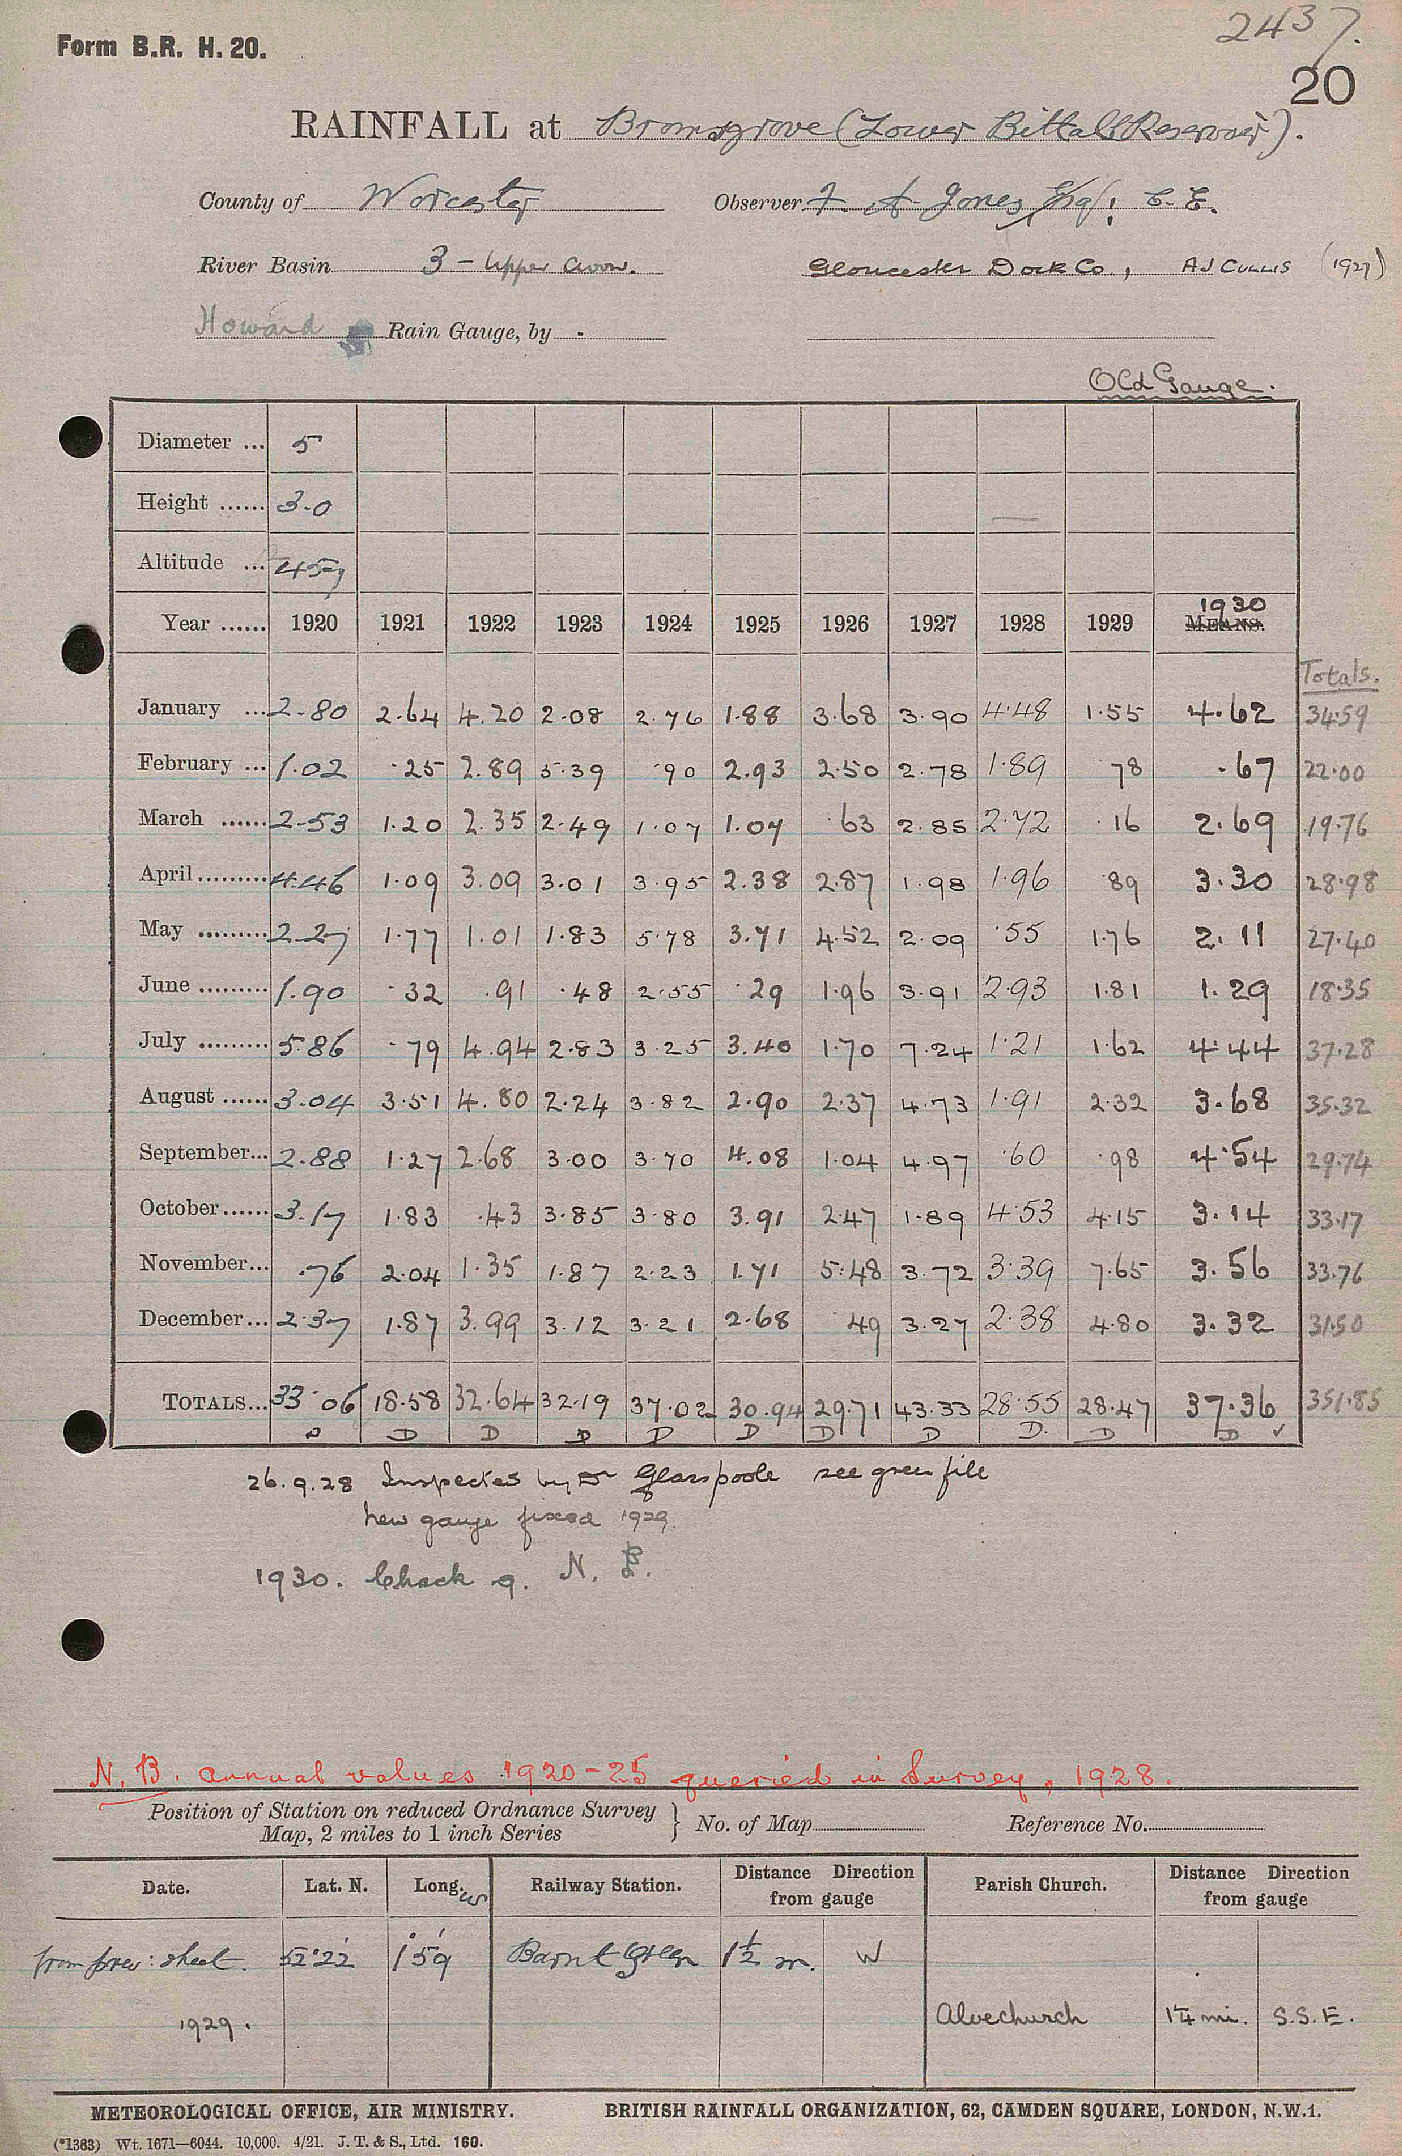 2437.
Form B.R. H. 20.
20
RAINFALL at Bromsgrove (Lower Bittall Reservoir).
County of Worcester Observer F. A. Jones Esq; C.E.
River Basin 3 - Upper Avon. Gloucester Dock Co, A J CULLIS (1927)
Howard Rain Gauge, by .
Old Gauge.
Diameter ... 5
Height ...... 3.0
Altitude ... 457
Year ...... 1920 1921 1922 1923 1924 1925 1926 1927 1928 1929 1930 MEANS.
Totals.
January ... 2.80 2.64 4.20 2.08 2.76 1.88 3.68 3.90 4.48 1.55 4.62 34.59
February ... 1.02 .25 2.89 5.39 .90 2.93 2.50 2.78 1.89 78 .67 22.00
March ...... 2.53 1.20 2.35 2.49 1.07 1.07 .63 2.85 2.72 .16 2.69 19.76
April ......... 4.46 1.09 3.09 3.01 3.95 2.38 2.87 1.98 1.96 89 3.30 28.98
May ......... 2.27 1.77 1.01 1.83 5.78 3.71 4.52 2.09 .55 1.76 2.11 27.40
June ......... 1.90 .32 .91 .48 2.55 .29 1.96 3.91 2.93 1.81 1.29 18.35
July ......... 5.86 .79 4.94 2.83 3.25 3.40 1.70 7.24 1.21 1.62 4.44 37.28
August ...... 3.04 3.51 4.80 2.24 3.82 2.90 2.37 4.73 1.91 2.32 3.68 35.32
September... 2.88 1.27 2.68 3.00 3.70 4.08 1.04 4.97 .60 .98 4.54 29.74
October...... 3.17 1.83 .43 3.85 3.80 3.91 2.47 1.89 4.53 4.15 3.14 33.17
November... .76 2.04 1.35 1.87 2.23 1.71 5.48 3.72 3.39 7.65 3.56 33.76
December... 2.37 1.87 3.99 3.12 3.21 2.68 49 3.27 2.38 4.80 3.32 31.50
TOTALS... 33.06 18.58 32.64 32.19 37.02 30.94 29.71 43.33 28.55 28.47 37.36 351.85
D D D D D D D D D. D D ✓
26.9.28 Inspected by Dr Glasspoole see green file
New gauge fixed 1929.
1930. Check g. N. B.
N.B. annual values 1920-25 queried in Survey, 1928.
Position of Station on reduced Ordnance Survey Map, 2 miles to 1 inch Series } No. of Map Reference No.
Date. Lat. N. Long. W Railway Station. Distance Direction from gauge Parish Church. Distance Direction from gauge
from prev: sheet. 52°22' 1°59' Barnt Green 1½ m. W
1929. Alvechurch 1¼ mi. S.S.E.
METEOROLOGICAL OFFICE, AIR MINISTRY. BRITISH RAINFALL ORGANIZATION, 62, CAMDEN SQUARE, LONDON, N.W.1.
(*1363) Wt. 1671—6044. 10,000. 4/21. J. T. & S., Ltd. 160.